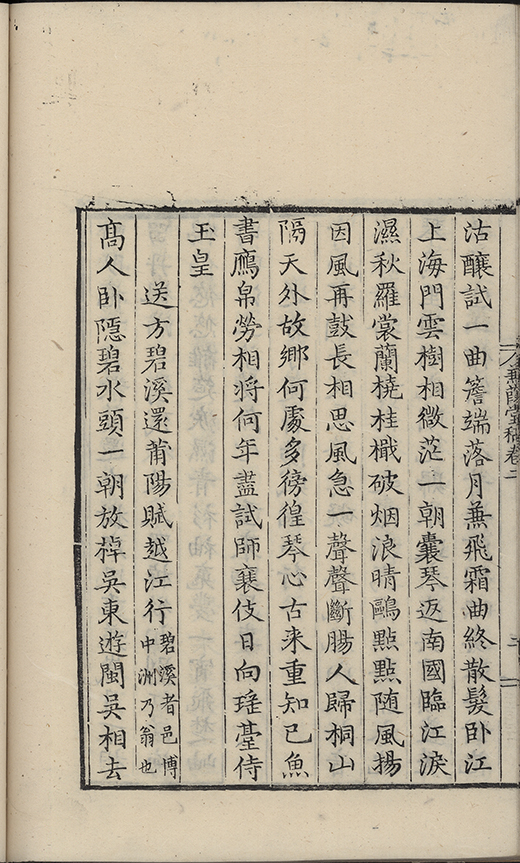 沽醸試一曲簷端落月兼飛霜曲終散髮卧江
上海門雲樹相微茫一朝囊琴返南國臨江淚
濕秋羅裳蘭橈桂檝破烟浪晴鷗點點随風揚
因風再鼓長相思風急一聲聲斷腸人歸桐山
隔天外故鄉何處多徬徨琴心古来重知已魚
書鴈帛勞相将何年盡試師襄伎日向瑶臺侍
玉皇
送方碧溪還莆陽賦越江行碧溪者邑博
中洲乃翁也
高人卧隱碧水頭一朝放棹吳東遊閩吳相去
堂稿卷二